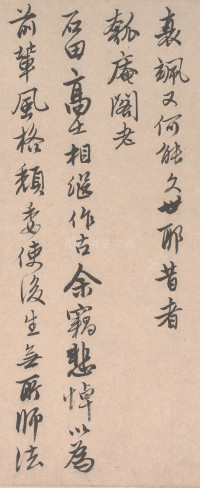 衰颯又何能久世耶昔者
瓠庵閣老
石田高士相继作古余竊悲悼以為
前輩風格頹委使後生無所師法